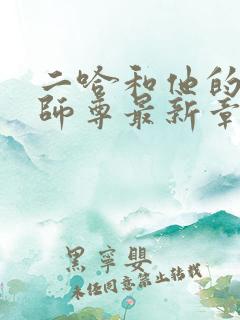 二哈和他的
師尊最新章
黑寧嬰
未任同意禁止轉載